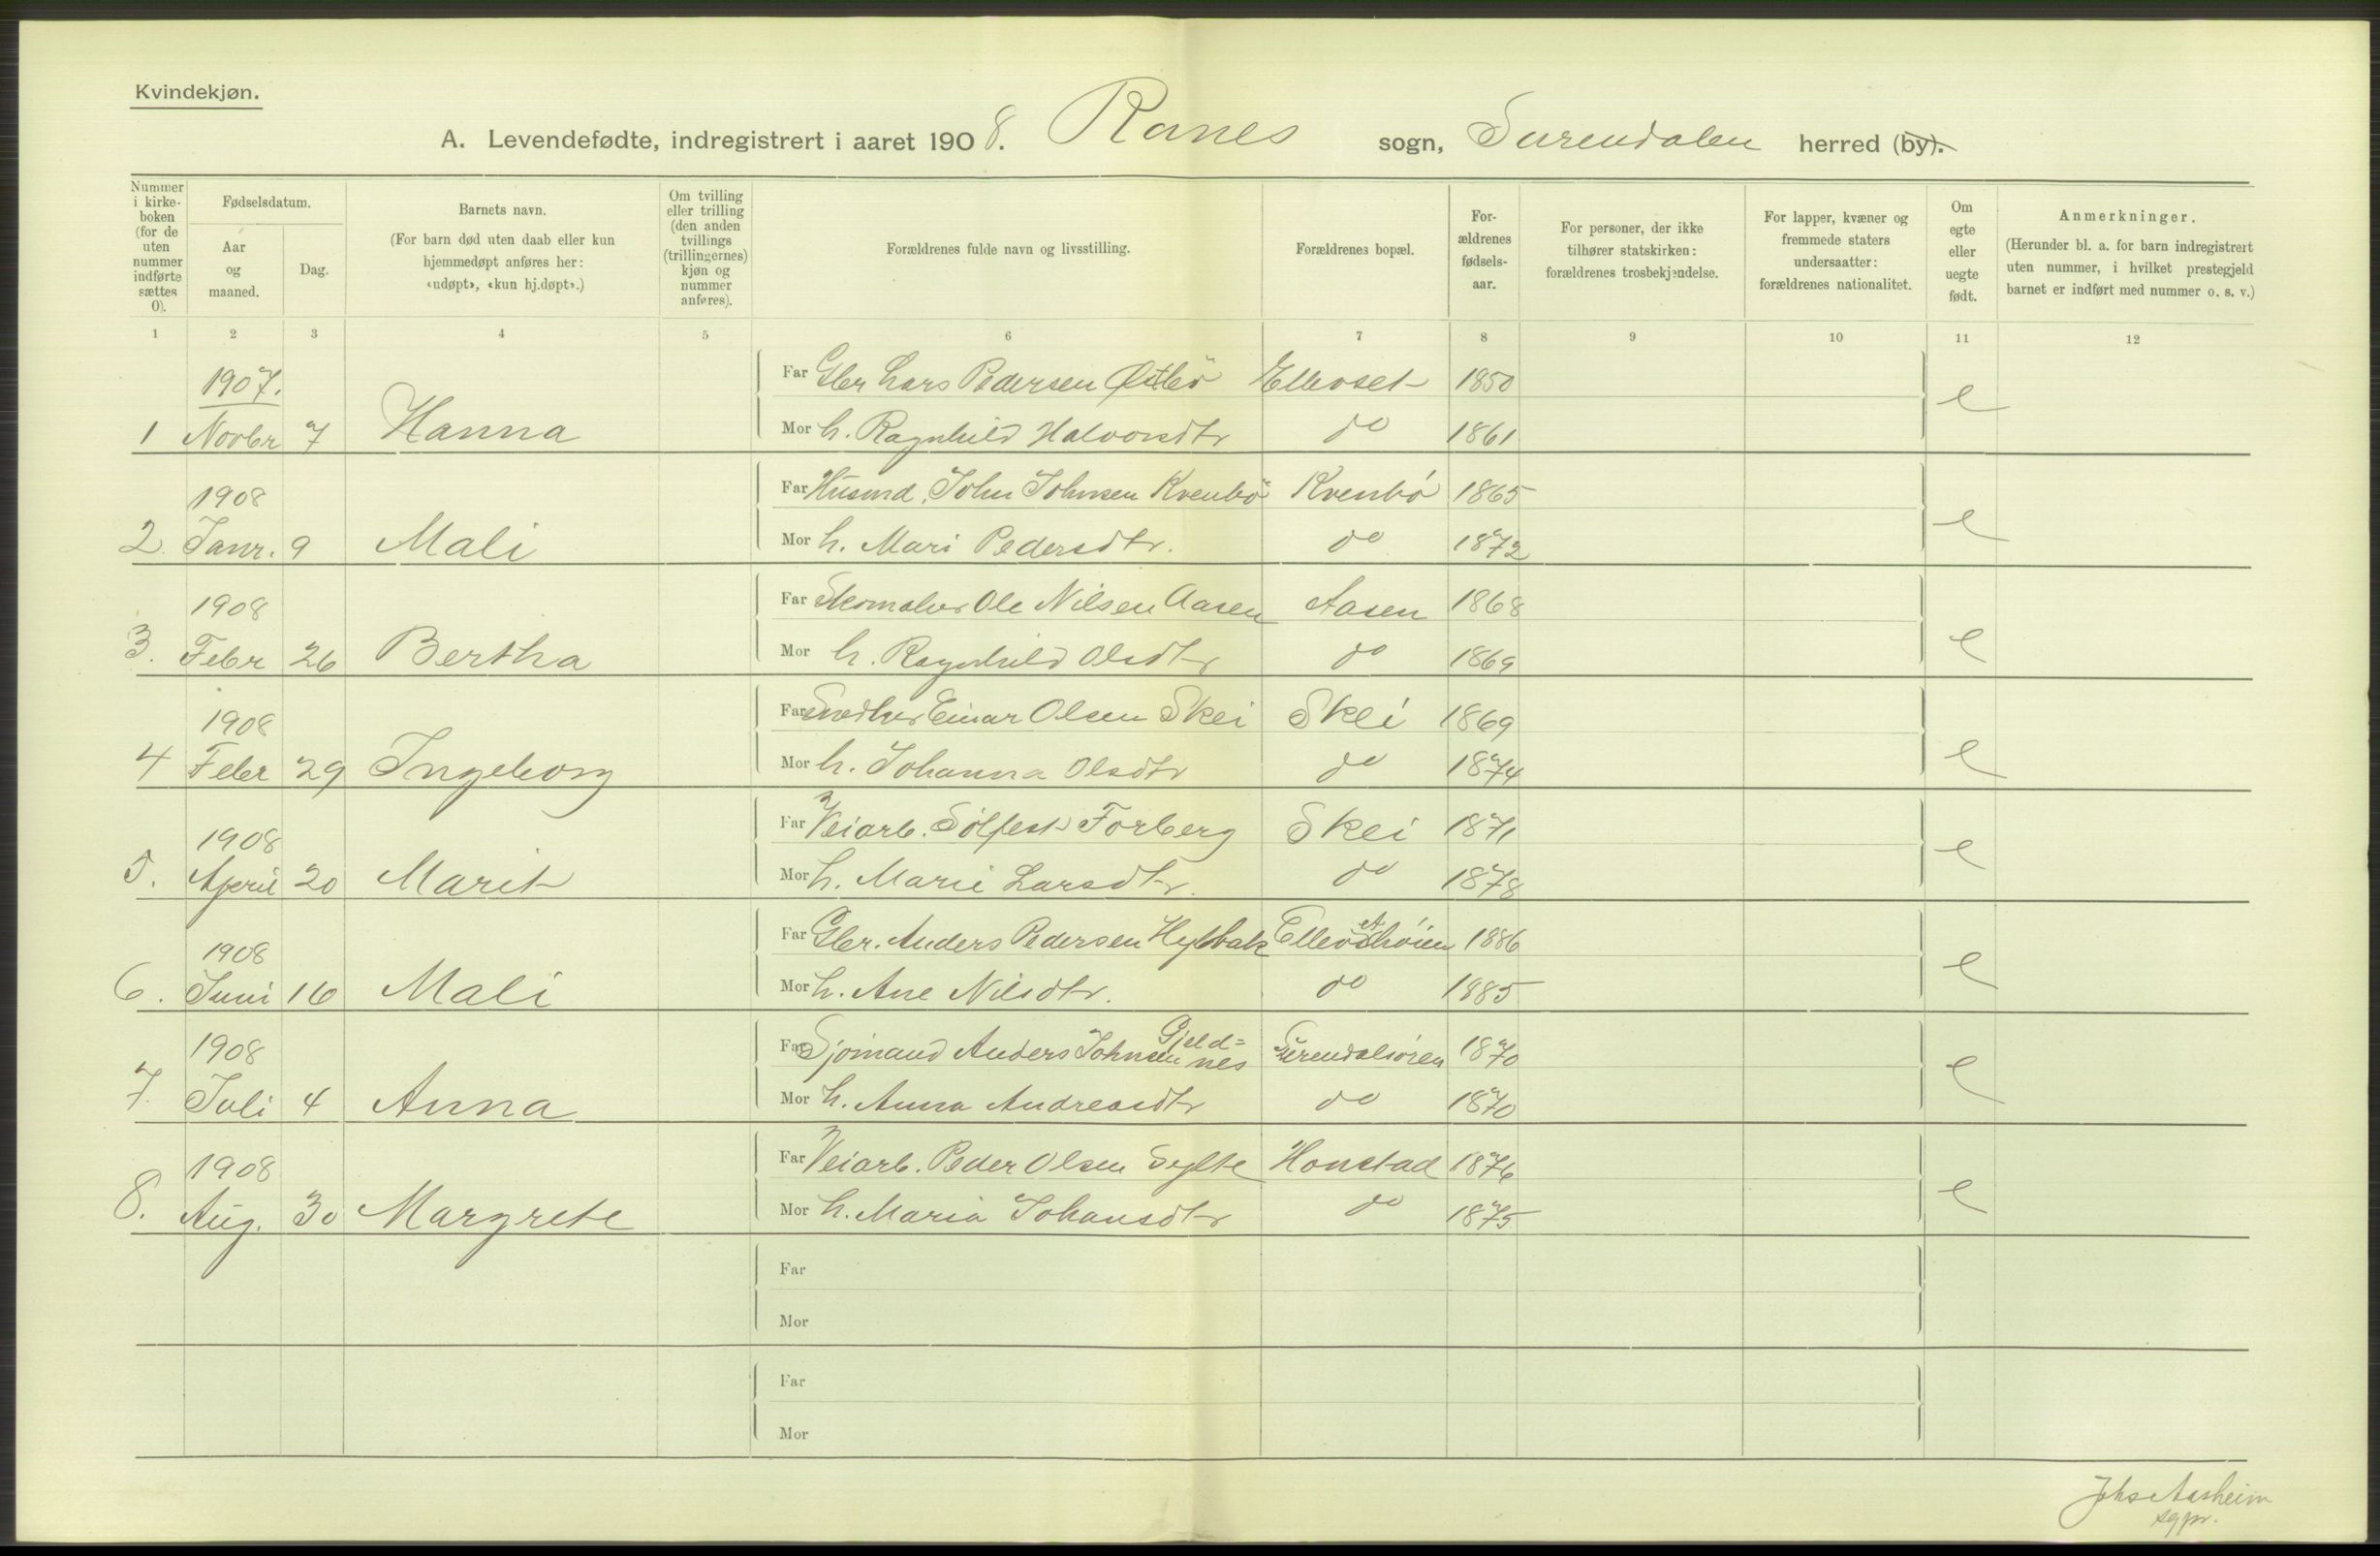 Kvindekjøn.
A. Levendefødte, indregistrert i aaret 1908. Ranes sogn, Surendalen herred (by).
Nummer i kirke-boken (for de uten nummer indførte sættes 0).
Fødselsdatum.
Aar og maaned.
Dag.
Barnets navn.
(For barn død uten daab eller kun hjemmedøpt anføres her: «udøpt», «kun hj.døpt».)
Om tvilling eller trilling (den anden tvillings (trillingernes) kjøn og nummer anføres).
Forældrenes fulde navn og livsstilling.
Forældrenes bopæl.
For-ældrenes fødsels-aar.
For personer, der ikke tilhører statskirken: forældrenes trosbekjendelse.
For lapper, kvæner og fremmede staters undersaatter: forældrenes nationalitet.
Om egte eller uegte født.
Anmerkninger.
(Herunder bl. a. for barn indregistrert uten nummer, i hvilket prestegjeld barnet er indført med nummer o. s. v.)
1 2 3 4 5 6 7 8 9 10 11 12
1907.
Far Gbr Lars Pedersen Østbö Ellevset 1850
1 Novbr 7 Hanna Mor h. Ragnhild Halvorsdtr do 1861 e
1908
Far Husmd. John Johnsen Kvenbö Kvenbö 1865
2. Janr. 9 Mali Mor h. Mari Pedersdtr. do 1872 e
1908
Far Skomaker Ole Nilsen Aasen Aasen 1868
3. Febr 26 Bertha Mor h. Ragnhild Olsdtr do 1869 e
1908
Far Snedker Einar Olsen Skei Skei 1869
4 Febr 29 Ingeborg Mor h. Johanna Olsdtr do 1874 e
1908
Far Veiarb. Sölfest Forberg Skei 1871
5. April 20 Marit Mor h. Marie Larsdtr. do 1878 e
1908
Far Gbr. Anders Pedersen Hylbak Ellevsethöien 1886
6. Juni 16 Mali Mor h. Ane Nilsdtr. do 1885 e
1908
Far Sjömand Anders Johnsen Gjeld=nes Surendalsören 1870
7. Juli 4 Anna Mor h. Anna Andreasdtr do 1870 e
1908
Far Veiarb. Peder Olsen Sylte Honstad 1876
8. Aug. 30 Margrete Mor h. Maria Johansdtr do 1875 e
Far
Mor
Far
Mor
Johs Aasheim
sgpr.